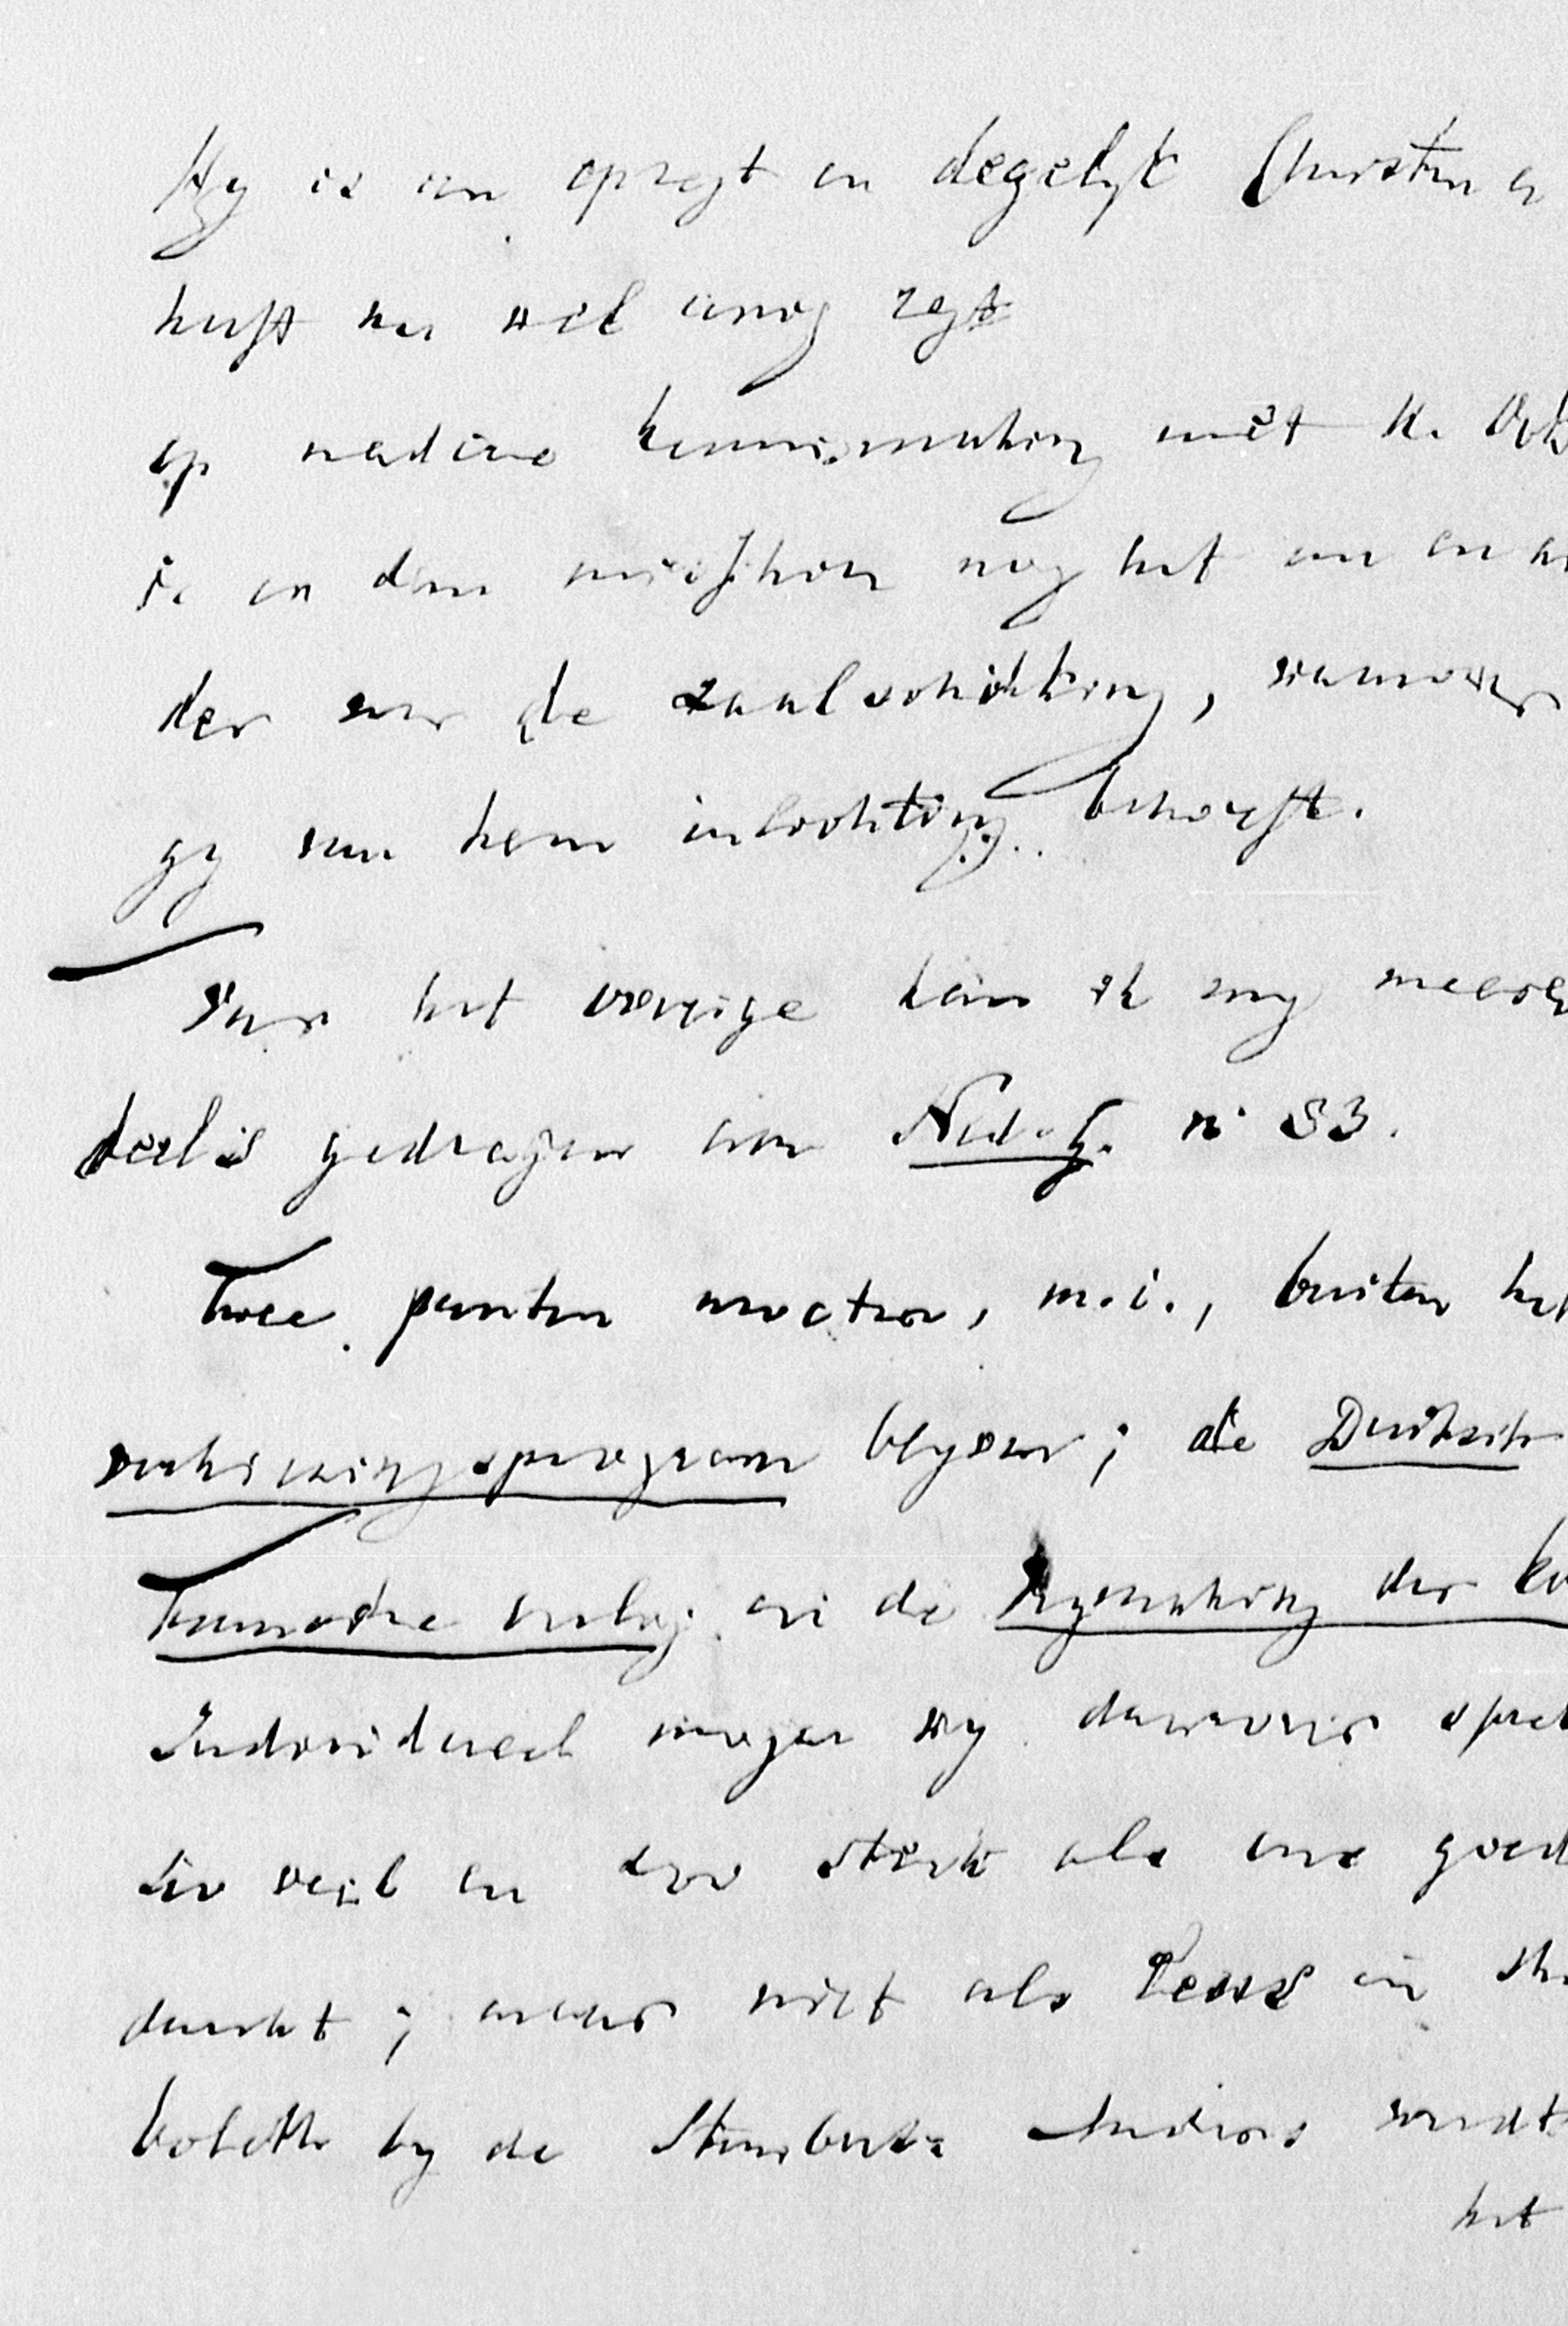 Hy is een opregt en degelyk Christen en
heeft nu wel eenig regt
op nadere kennismaking met U. Ook
is en dan misschien nog het een en an
der over de zaal schikking, waarover
gy van hem inlichting behoeft.
Voor het overige kan ik my meeren
deels gedragen aan Ned. G. n° 83.
Twee punten moeten, m.i., buiten het
verkiezingsprogram blyven; de Duitsch
Fransche oorlog en de Vrymaking der
Individueel mogen wy daarover
zoo veel en zoo sterk als ons goed
dunkt; maar niet als Leus in
by de Stembus Indien wordt
het